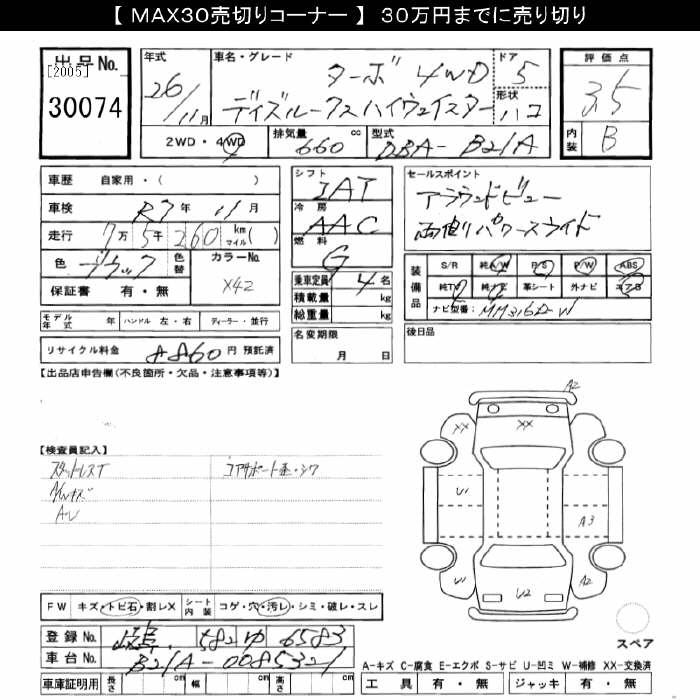 【 MAX30売切りコーナー 】 30万円までに売り切り
出品No.
[2005]
30074
年式
26/11月
車名・グレード
ターボ 4WD
デイズルークスハイウェイスター
ドア
5
形状
ハコ
評価点
3.5
内装
B
2WD・4WD
排気量
660 cc
型式
DBA-B21A
車歴 自家用・( )
車検 R7年 11月
走行 7万 5千 260 km マイル( )
色 ブラック
色替
カラーNo.
X42
保証書 有・無
モデル年式 年 ハンドル 左・右 ディーラー・並行
リサイクル料金 8860 円 預託済
シフト
IAT
冷房
AAC
燃料
G
乗車定員 4 名
積載量 kg
総重量 kg
名変期限
月 日
セールスポイント
アラウンドビュー
両側パワースライド
装備品
S/R 純A/W P/S P/W ABS
純TV 純ナビ 革シート 外ナビ エアB
ナビ型番: MM316D-W
後日品
【出品店申告欄(不良箇所・欠品・注意事項等)】
【検査員記入】
スタットレスT
コアサポート歪・シワ
FW キズ・トビ石・割レX
シート内装 コゲ・穴・汚レ・シミ・破レ・スレ
登録No. 岐阜 582 ゆ 6583
車台No. B21A-0085321
車庫証明用 長さ cm 幅 cm 高さ cm
A2
XX
XX
XX
U1
A3
U1
U2
A2
スペア
A-キズ C-腐食 E-エクボ S-サビ U-凹ミ W-補修 XX-交換済
工具 有・無 ジャッキ 有・無